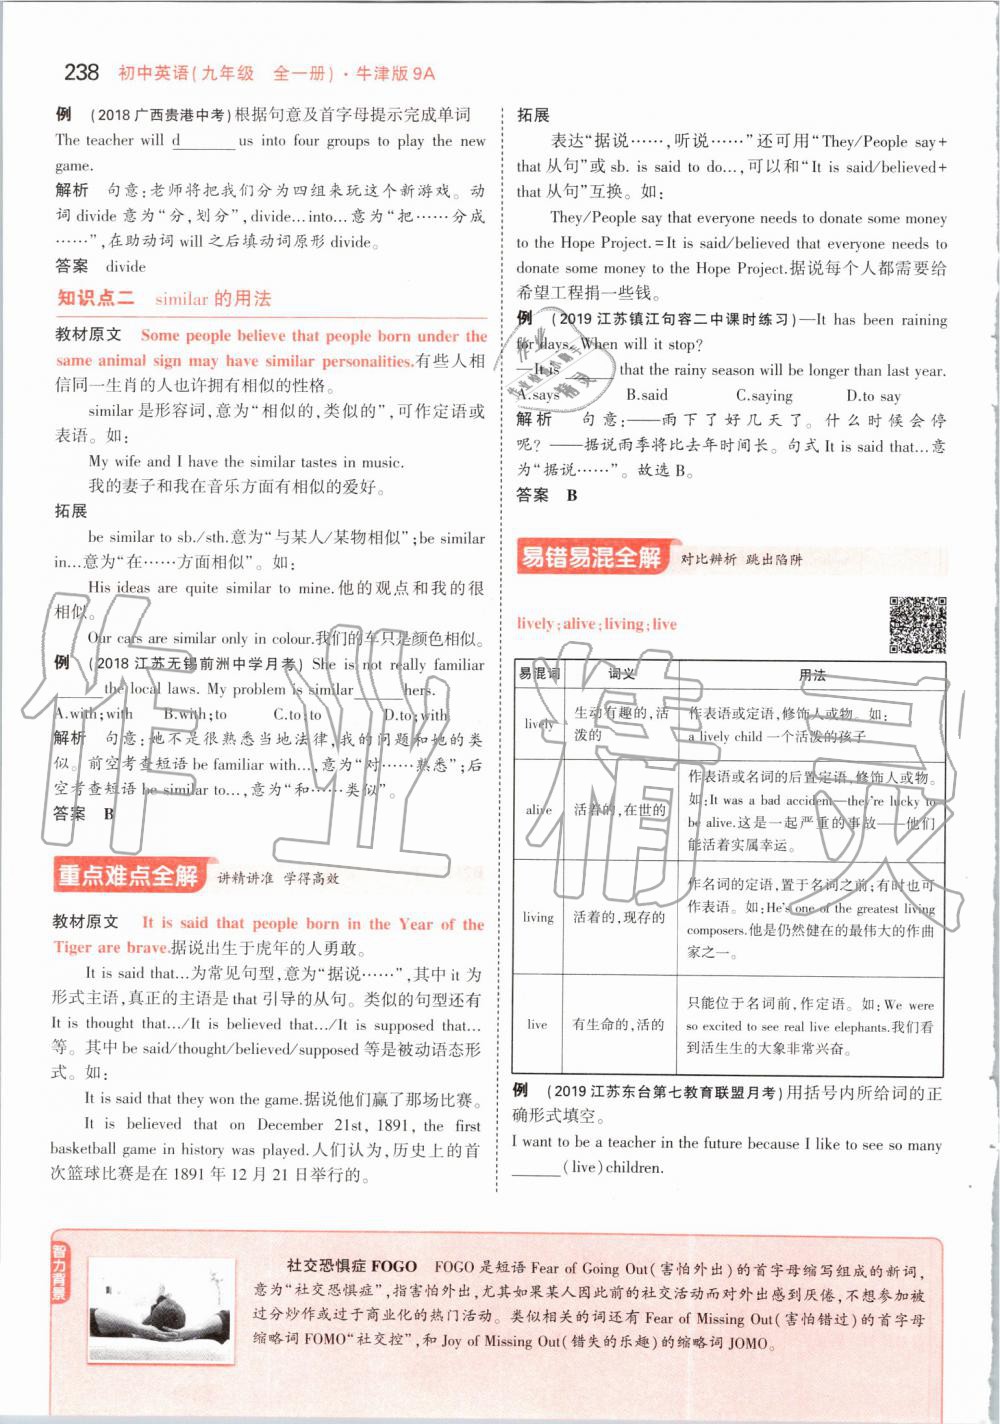 238 初中英语(九年级 全一册)·牛津版9A
例 (2018广西贵港中考)根据句意及首字母提示完成单词
The teacher will d______ us into four groups to play the new
game.
解析 句意:老师将把我们分为四组来玩这个新游戏。动
词divide意为“分,划分”,divide...into...意为“把……分成
……”,在助动词will之后填动词原形divide。
答案 divide
知识点二 similar的用法
教材原文 Some people believe that people born under the
same animal sign may have similar personalities.有些人相
信同一生肖的人也许拥有相似的性格。
similar是形容词,意为“相似的,类似的”,可作定语或
表语。如:
My wife and I have the similar tastes in music.
我的妻子和我在音乐方面有相似的爱好。
拓展
be similar to sb./sth.意为“与某人/某物相似”;be similar
in...意为“在……方面相似”。如:
His ideas are quite similar to mine.他的观点和我的很
相似。
Our cars are similar only in colour.我们的车只是颜色相似。
例 (2018江苏无锡前洲中学月考) She is not really familiar
______ the local laws. My problem is similar ______ hers.
A.with;with B.with;to C.to;to D.to;with
解析 句意:她不是很熟悉当地法律,我的问题和她的类
似。前空考查短语be familiar with...,意为“对……熟悉”;后
空考查短语be similar to...,意为“和……类似”。
答案 B
重点难点全解 讲精讲准 学得高效
教材原文 It is said that people born in the Year of the
Tiger are brave.据说出生于虎年的人勇敢。
It is said that...为常见句型,意为“据说……”,其中it为
形式主语,真正的主语是that引导的从句。类似的句型还有
It is thought that.../It is believed that.../It is supposed that...
等。其中be said/thought/believed/supposed等是被动语态形
式。如:
It is said that they won the game.据说他们赢了那场比赛。
It is believed that on December 21st, 1891, the first
basketball game in history was played.人们认为,历史上的首
次篮球比赛是在1891年12月21日举行的。
拓展
表达“据说……,听说……”还可用“They/People say+
that从句”或sb. is said to do...,可以和“It is said/believed+
that从句”互换。如:
They/People say that everyone needs to donate some money
to the Hope Project.=It is said/believed that everyone needs to
donate some money to the Hope Project.据说每个人都需要给
希望工程捐一些钱。
例 (2019江苏镇江句容二中课时练习)—It has been raining
for days. When will it stop?
—It is ______ that the rainy season will be longer than last year.
A.says B.said C.saying D.to say
解析 句意:——雨下了好几天了。什么时候会停
呢?——据说雨季将比去年时间长。句式It is said that...意
为“据说……”。故选B。
答案 B
易错易混全解 对比辨析 跳出陷阱
lively;alive;living;live
易混词 词义 用法
lively 生动有趣的,活泼的 作表语或定语,修饰人或物。如:
a lively child 一个活泼的孩子
alive 活着的,在世的 作表语或名词的后置定语,修饰人或物。
如:It was a bad accident—they're lucky to
be alive.这是一起严重的事故——他们
能活着实属幸运。
living 活着的,现存的 作名词的定语,置于名词之前;有时也可
作表语。如:He's one of the greatest living
composers.他是仍然健在的最伟大的作曲
家之一。
live 有生命的,活的 只能位于名词前,作定语。如:We were
so excited to see real live elephants.我们看
到活生生的大象非常兴奋。
例 (2019江苏东台第七教育联盟月考)用括号内所给词的正
确形式填空。
I want to be a teacher in the future because I like to see so many
______(live)children.
智力背景
社交恐惧症FOGO FOGO是短语Fear of Going Out(害怕外出)的首字母缩写组成的新词,
意为“社交恐惧症”,指害怕外出,尤其如果某人因此前的社交活动而对外出感到厌倦,不想参加被
过分炒作或过于商业化的热门活动。类似相关的词还有Fear of Missing Out(害怕错过)的首字母
缩略词FOMO“社交控”,和Joy of Missing Out(错失的乐趣)的缩略词JOMO。
作业精灵